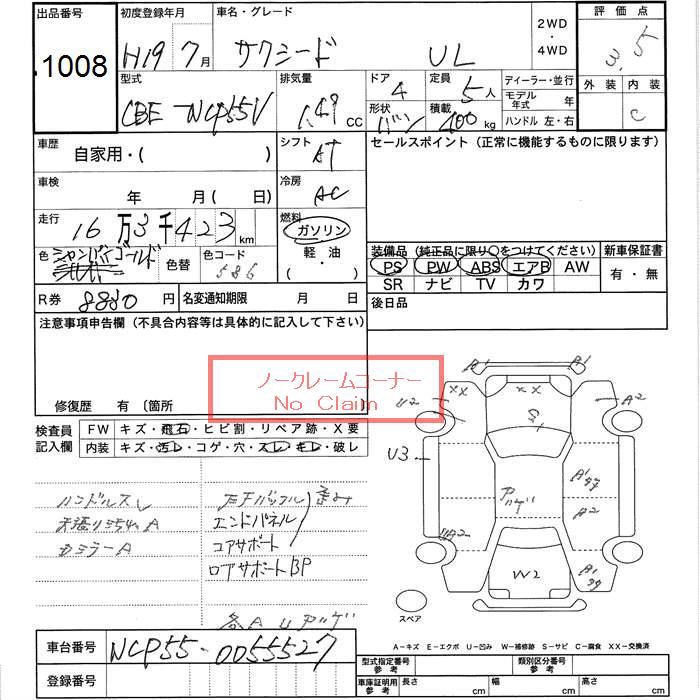 出品番号 初度登録年月 車名・グレード 2WD ・ 4WD 評価点
1008 H19 7月 サクシード UL 3.5
型式 排気量 ドア 定員 ディーラー・並行 外装 内装
CBE-NCP55V 1.49 CC 4 5人 モデル年式 年 C
形状 バン 積載 400kg ハンドル 左・右
車歴 自家用・( ) シフト AT セールスポイント(正常に機能するものに限ります)
車検 年 月( 日) 冷房 AC
走行 16万3千423km 燃料 ガソリン
軽・油
・( )
色 シャンパンゴールド 色替 色コード 586
装備品(純正品に限り○をつけてください) 新車保証書
PS PW ABS エアB AW 有・無
SR ナビ TV カワ
R券 8880円 名変通知期限 月 日 後日品
注意事項申告欄(不具合内容等は具体的に記入して下さい)
ノークレームコーナー
No Claim
修復歴 有〔箇所
検査員記入欄 FW キズ・飛石・ヒビ割・リペア跡・X要
内装 キズ・汚レ・コゲ・穴・スレ・キレ・破レ
A1 A1
XX XX
U2 A2
S1
U3
A1
A2
W2
ハンドルスレ
エンドパネル
ミラーA
コアサポート
ロアサポートBP
各A U
スペア
A−キズ E−エクボ U−凹み W−補修跡 S−サビ C−腐食 XX−交換済
車台番号 NCP55-0055527
登録番号
型式指定番号 参考 類別区分番号 参考
車庫証明用 参考 長さ cm 幅 cm 高さ cm